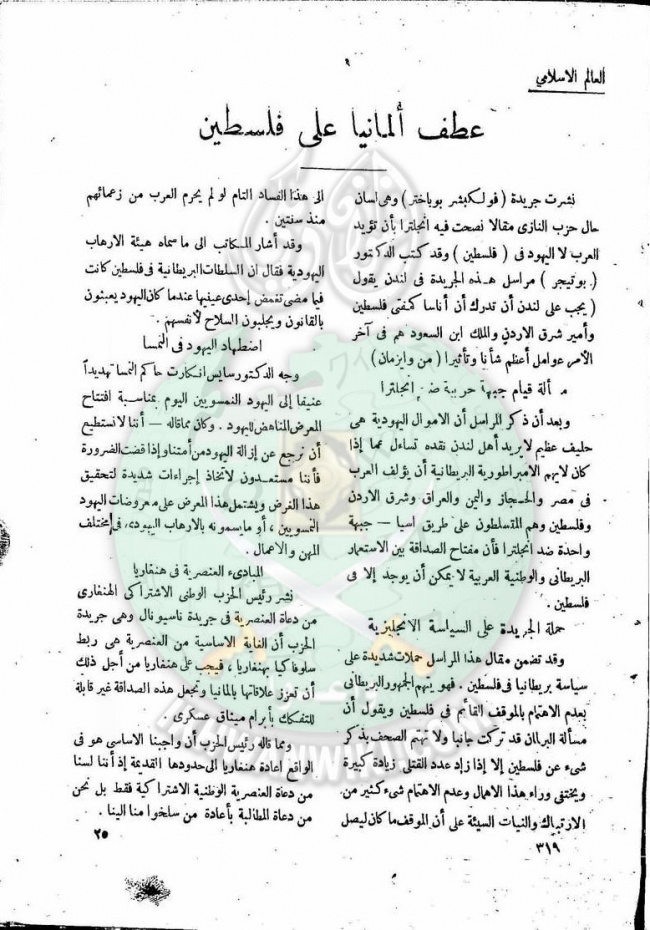 العالم الاسلامي
عطف ألمانيا على فلسطين
نشرت جريدة ( فولكبشر بوباختر ) وهى لسان
حال حزب النازى مقالا نصحت فيه انجلترا بأن تؤيد
العرب لا اليهود فى ( فلسطين ) وقد كتب الدكتور
( بوتيجر ) مراسل هذه الجريدة فى لندن يقول
( يجب على لندن أن تدرك أن أناسا كمفتى فلسطين
وأمير شرق الاردن والملك ابن السعود هم فى آخر
الامر عوامل أعظم شأنا وتأثيرا ( من وايزمان )
مسألة قيام جبهة حربية ضد انجلترا
وبعد أن ذكر المراسل أن الاموال اليهودية هى
حليف عظيم لا يريد أهل لندن نقده تساءل عما إذا
كان لايهم الامبراطورية البريطانية أن يؤلف العرب
فى مصر والحجاز واليمن والعراق وشرق الاردن
وفلسطين وهم المتسلطون على طريق اسيا — جبهة
واحدة ضد انجلترا فأن مفتاح الصداقة بين الاستعمار
البريطانى والوطنية العربية لا يمكن أن يوجد إلا فى
فلسطين .
حملة الجريدة على السياسة الانجليزية
وقد تضمن مقال هذا المراسل حملات شديدة على
سياسة بريطانيا فى فلسطين . فهو يتهم الجمهور البريطانى
بعدم الاهتمام بالموقف القائم فى فلسطين ويقول أن
مسألة البرلمان قد تركت جانبا ولا تهتم الصحف بذكر
شىء عن فلسطين إلا إذا زاد عدد القتلى زيادة كبيرة
ويختفى وراء هذا الاهمال وعدم الاهتمام شىء كثير من
الارتباك والنيات السيئة على أن الموقف ما كان ليصل
٣١٩
الى هذا الفساد التام لو لم يحرم العرب من زعمائهم
منذ سنتين .
وقد أشار المكاتب الى ما سماه هيئة الارهاب
اليهودية فقال ان السلطات البريطانية فى فلسطين كانت
فيما مضى تغمض إحدى عينيها عندما كان اليهود يعبثون
بالقانون ويجلبون السلاح لأنفسهم .
اضطهاد اليهود فى النمسا
وجه الدكتور سايس انكارت حاكم النمسا تهديداً
عنيفا إلى اليهود النمسويين اليوم بمناسبة افتتاح
المعرض المناهض لليهود . وكان مما قاله — أننا لا نستطيع
أن نرجع عن إزالة اليهود من أمتنا وإذا قضت الضرورة
فأننا مستعدون لاتخاذ إجراءات شديدة لتحقيق
هذا الغرض ويشتمل هذا المعرض على معروضات اليهود
النمسويين ، أو مايسمونه بالارهاب اليهودى فى مختلف
المهن والاعمال .
المبادىء العنصرية فى هنغاريا
نشر رئيس الحزب الوطنى الاشتراكى الهنغارى
من دعاة العنصرية فى جريدة ناسيونال وهى جريدة
الحزب أن الغاية الاساسية من العنصرية هى ربط
سلوفاكيا بهنغاريا ، فيجب على هنغاريا من أجل ذلك
أن تعزز علاقاتها بالمانيا وتجعل هذه الصداقة غير قابلة
للتفكك بأبرام ميثاق عسكرى .
ومما قاله رئيس الحزب أن واجبنا الاساسى هو فى
الواقع إعادة هنغاريا الى حدودها القديمة إذ أننا لسنا
من دعاة العنصرية الوطنية الاشتراكية فقط بل نحن
من دعاة المطالبة بأعادة من سلخوا منا الينا .
٢٥